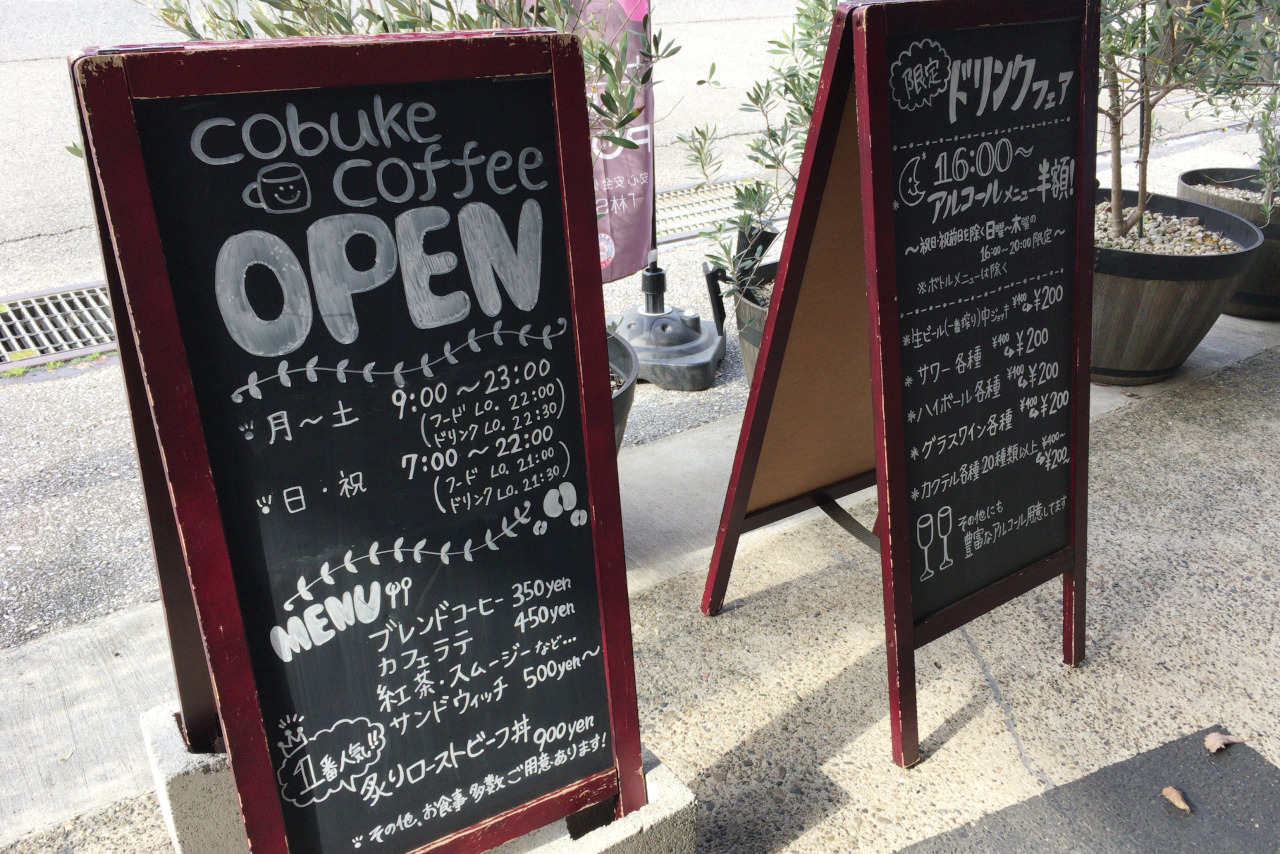 cobuke
coffee
OPEN
月〜土 9:00〜23:00
(フード LO. 22:00
ドリンク LO. 22:30)
日・祝 7:00〜22:00
(フード LO. 21:00
ドリンク LO. 21:30)
MENU
ブレンドコーヒー 350yen
カフェラテ 450yen
紅茶・スムージーなど…
サンドウィッチ 500yen〜
1番人気!!
炙りローストビーフ丼 900yen
その他、お食事多数ご用意あります!
限定
ドリンクフェア
16:00〜
アルコールメニュー半額!
〜祝日・祝前日を除く日曜〜木曜の
16:00〜20:00限定〜
※ボトルメニューは除く
*生ビール(一番搾り)中ジョッキ ¥400 ¥200
*サワー各種 ¥400 ¥200
*ハイボール各種 ¥400 ¥200
*グラスワイン各種 ¥400 ¥200
*カクテル各種20種類以上 ¥400〜 ¥200〜
その他にも
豊富なアルコール用意してます
安心安全